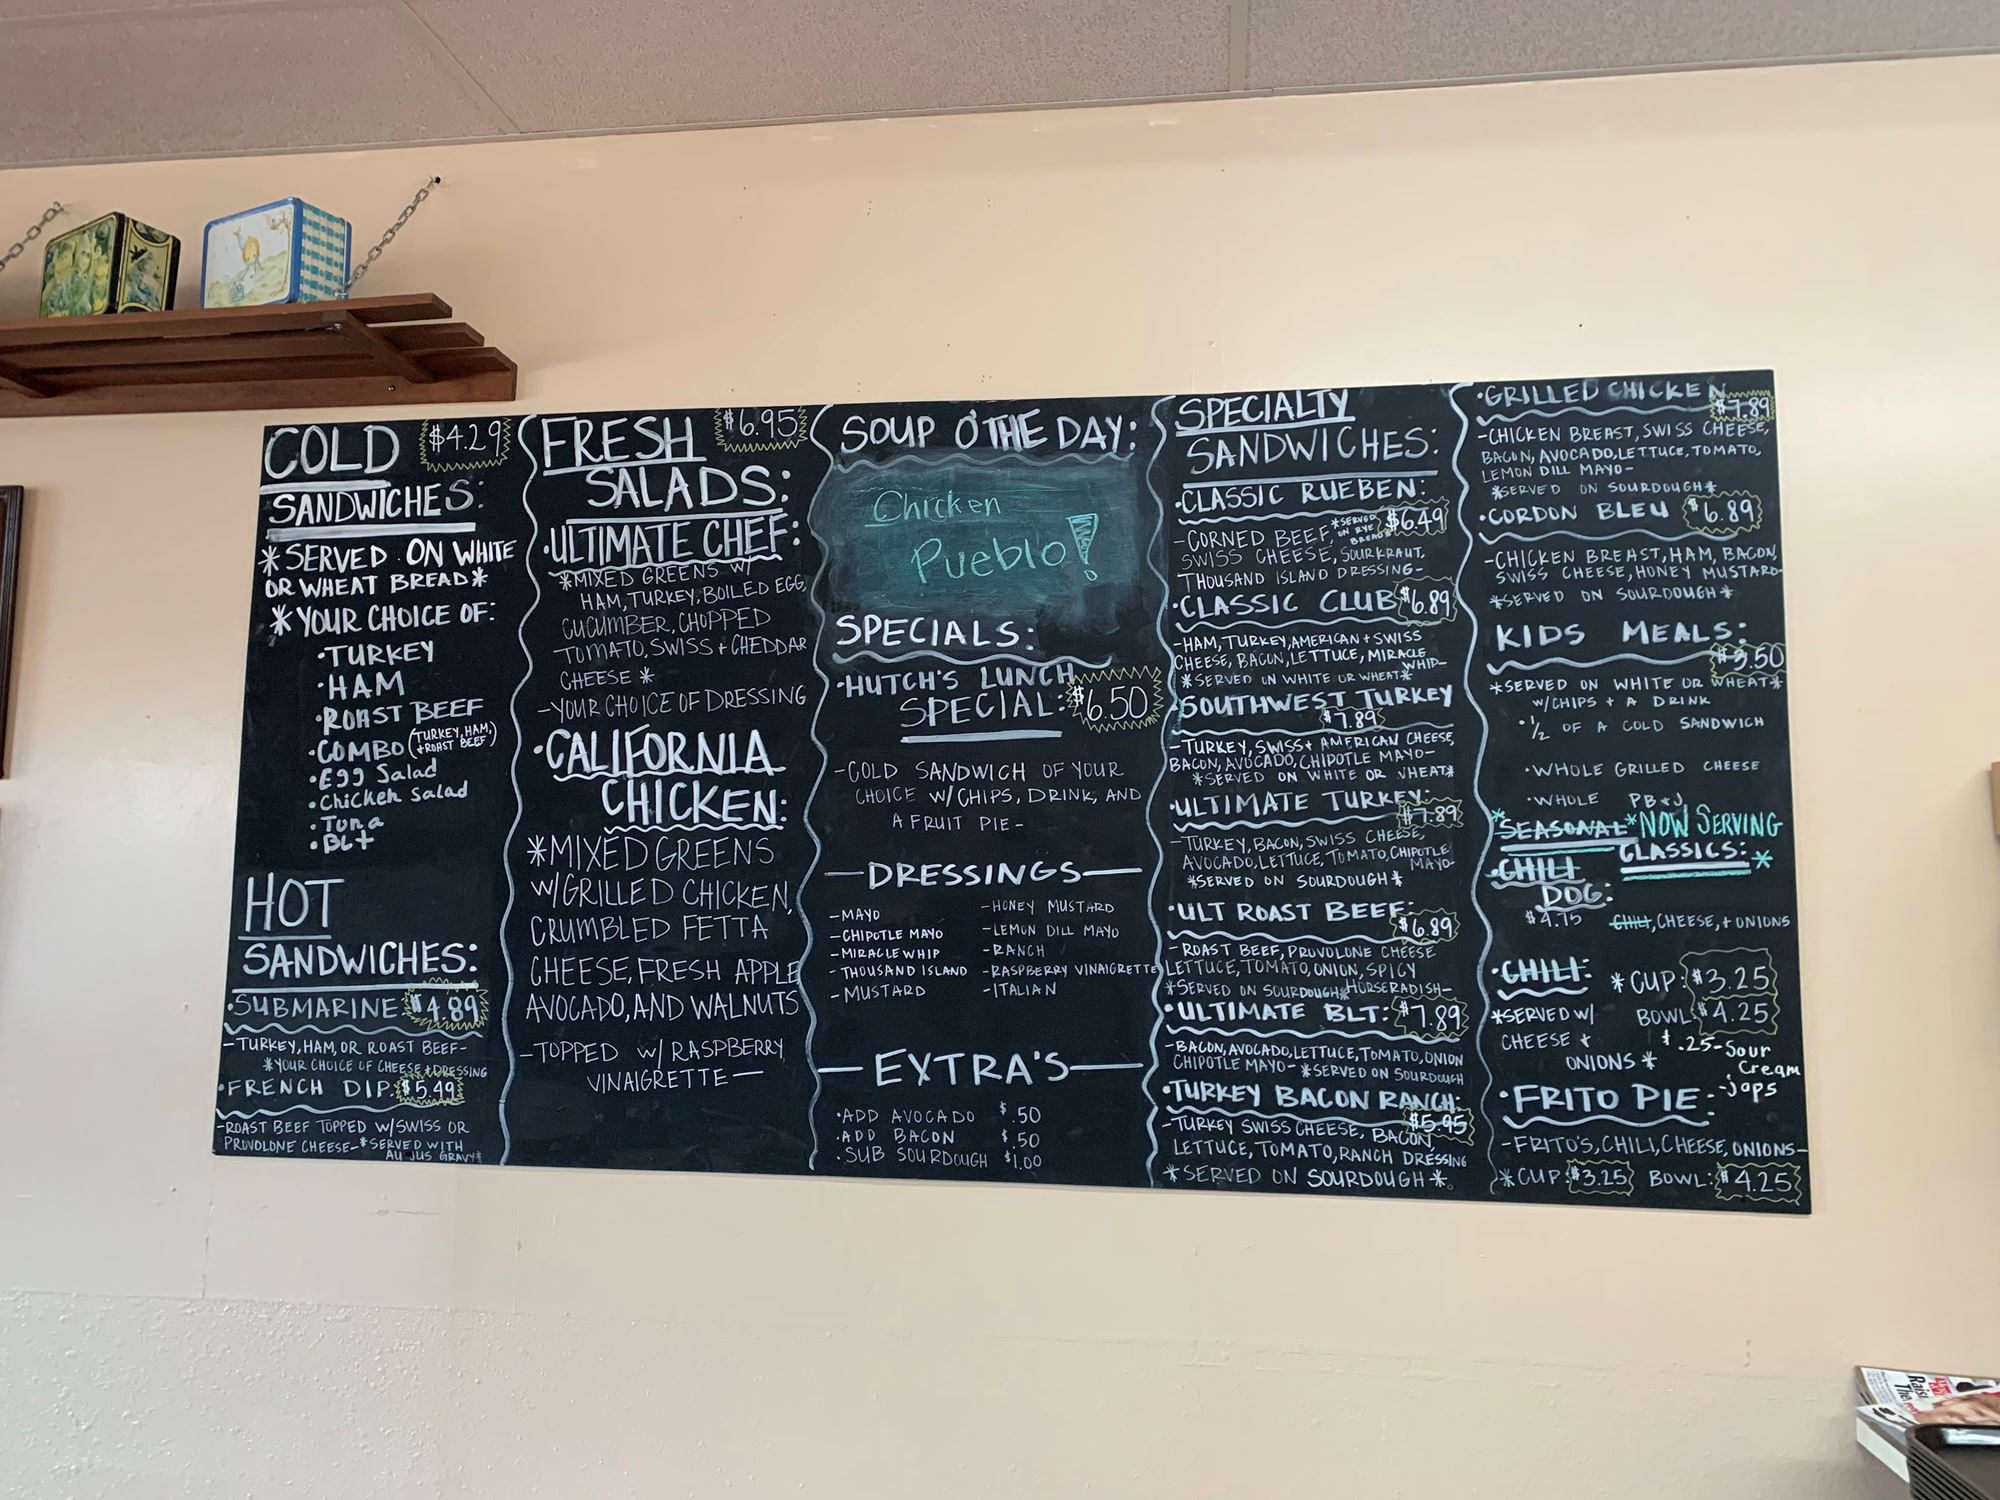 COLD $4.29
SANDWICHES:
*SERVED ON WHITE
OR WHEAT BREAD*
*YOUR CHOICE OF:
•TURKEY
•HAM
•ROAST BEEF
•COMBO (TURKEY, HAM,
+ROAST BEEF)
•Egg Salad
•Chicken Salad
•Tuna
•BLt
HOT
SANDWICHES:
•SUBMARINE $4.89
-TURKEY, HAM, OR ROAST BEEF-
*YOUR CHOICE OF CHEESE+DRESSING
•FRENCH DIP: $5.49
-ROAST BEEF TOPPED W/SWISS OR
PROVOLONE CHEESE-*SERVED WITH
AU JUS GRAVY*
FRESH $6.95
SALADS:
•ULTIMATE CHEF:
*MIXED GREENS W/
HAM, TURKEY, BOILED EGG,
CUCUMBER, CHOPPED
TOMATO, SWISS + CHEDDAR
CHEESE *
-YOUR CHOICE OF DRESSING
•CALIFORNIA
CHICKEN:
*MIXED GREENS
W/GRILLED CHICKEN,
CRUMBLED FETTA
CHEESE, FRESH APPLE
AVOCADO, AND WALNUTS
-TOPPED W/ RASPBERRY
VINAIGRETTE-
SOUP O'THE DAY:
Chicken
Pueblo!
SPECIALS:
•HUTCH'S LUNCH
SPECIAL: $6.50
-COLD SANDWICH OF YOUR
CHOICE W/CHIPS, DRINK, AND
A FRUIT PIE-
-DRESSINGS-
-MAYO
-CHIPOTLE MAYO
-MIRACLE WHIP
-THOUSAND ISLAND
-MUSTARD
-HONEY MUSTARD
-LEMON DILL MAYO
-RANCH
-RASPBERRY VINAIGRETTE
-ITALIAN
-EXTRA'S-
•ADD AVOCADO $.50
•ADD BACON $.50
•SUB SOURDOUGH $1.00
SPECIALTY
SANDWICHES:
•CLASSIC RUEBEN:
-CORNED BEEF, *SERVED ON RYE BREAD* $6.49
SWISS CHEESE, SOURKRAUT,
THOUSAND ISLAND DRESSING-
•CLASSIC CLUB $6.89
-HAM, TURKEY, AMERICAN + SWISS
CHEESE, BACON, LETTUCE, MIRACLE
WHIP-
*SERVED ON WHITE OR WHEAT*
•SOUTHWEST TURKEY
$7.89
-TURKEY, SWISS + AMERICAN CHEESE,
BACON, AVOCADO, CHIPOTLE MAYO-
*SERVED ON WHITE OR WHEAT*
•ULTIMATE TURKEY:
$7.89
-TURKEY, BACON, SWISS CHEESE,
AVOCADO, LETTUCE, TOMATO, CHIPOTLE
MAYO-
*SERVED ON SOURDOUGH*
•ULT ROAST BEEF:
$6.89
-ROAST BEEF, PROVOLONE CHEESE
LETTUCE, TOMATO, ONION, SPICY
*SERVED ON SOURDOUGH* HORSERADISH-
•ULTIMATE BLT: $7.89
-BACON, AVOCADO, LETTUCE, TOMATO, ONION
CHIPOTLE MAYO- *SERVED ON SOURDOUGH
•TURKEY BACON RANCH:
$5.95
-TURKEY SWISS CHEESE, BACON,
LETTUCE, TOMATO, RANCH DRESSING
*SERVED ON SOURDOUGH*
•GRILLED CHICKEN
$7.89
-CHICKEN BREAST, SWISS CHEESE,
BACON, AVOCADO, LETTUCE, TOMATO,
LEMON DILL MAYO-
*SERVED ON SOURDOUGH*
•CORDON BLEU $6.89
-CHICKEN BREAST, HAM, BACON,
SWISS CHEESE, HONEY MUSTARD-
*SERVED ON SOURDOUGH*
KIDS MEALS:
$3.50
*SERVED ON WHITE OR WHEAT*
W/CHIPS + A DRINK
•1/2 OF A COLD SANDWICH
•WHOLE GRILLED CHEESE
•WHOLE PB+J
*SEASONAL* NOW SERVING
CLASSICS: *
•CHILI
DOG:
$4.75 CHILI, CHEESE, + ONIONS
•CHILI: *CUP: $3.25
*SERVED W/ BOWL: $4.25
CHEESE +
ONIONS *
$.25-Sour
Cream
-Japs
•FRITO PIE:
-FRITO'S, CHILI, CHEESE, ONIONS-
*CUP: $3.25 BOWL: $4.25